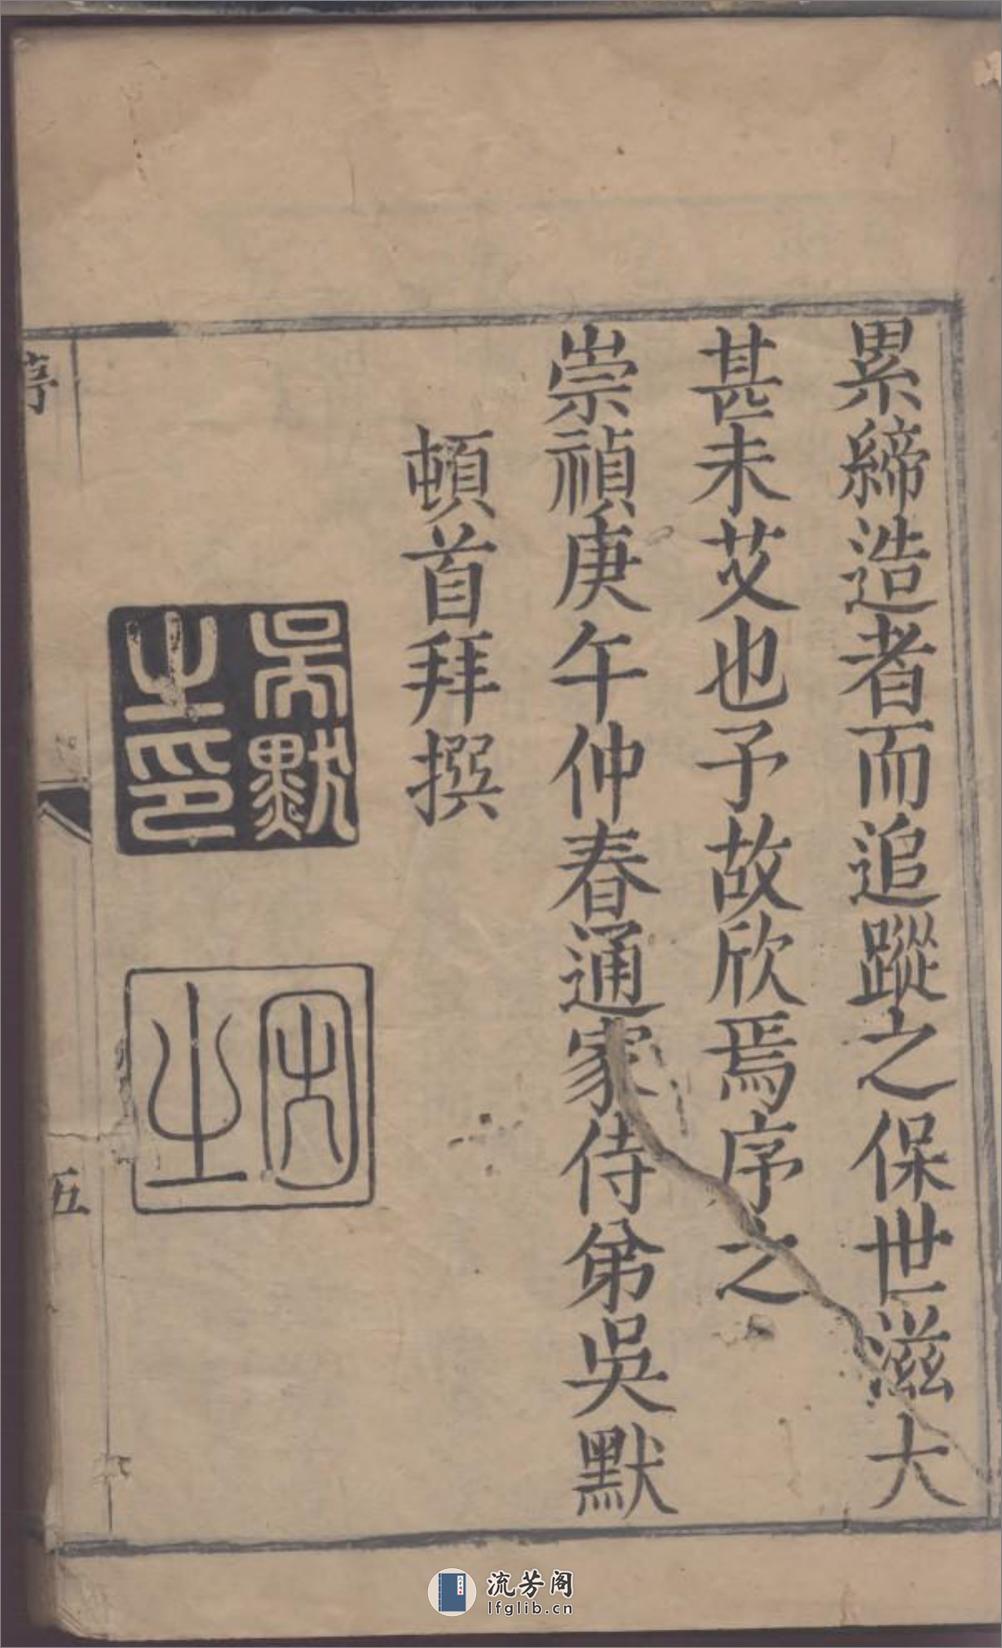 累締造者而追蹤之保世滋大
甚未艾也予故欣焉序之
崇禎庚午仲春通家侍弟吳默
頓首拜撰
吳默
之印
之
序
五
流芳阁
lfglib.cn